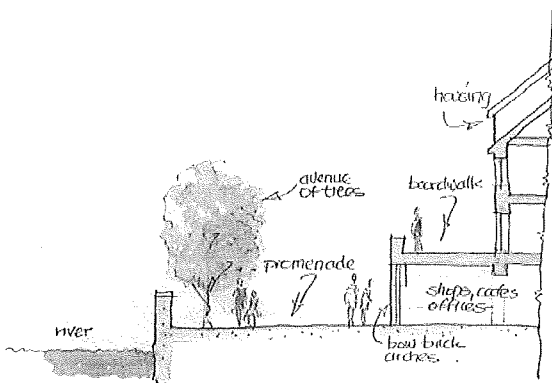 housing
avenue
of trees
boardwalk
promenade
shops, cafes
offices
river
bow brick
arches